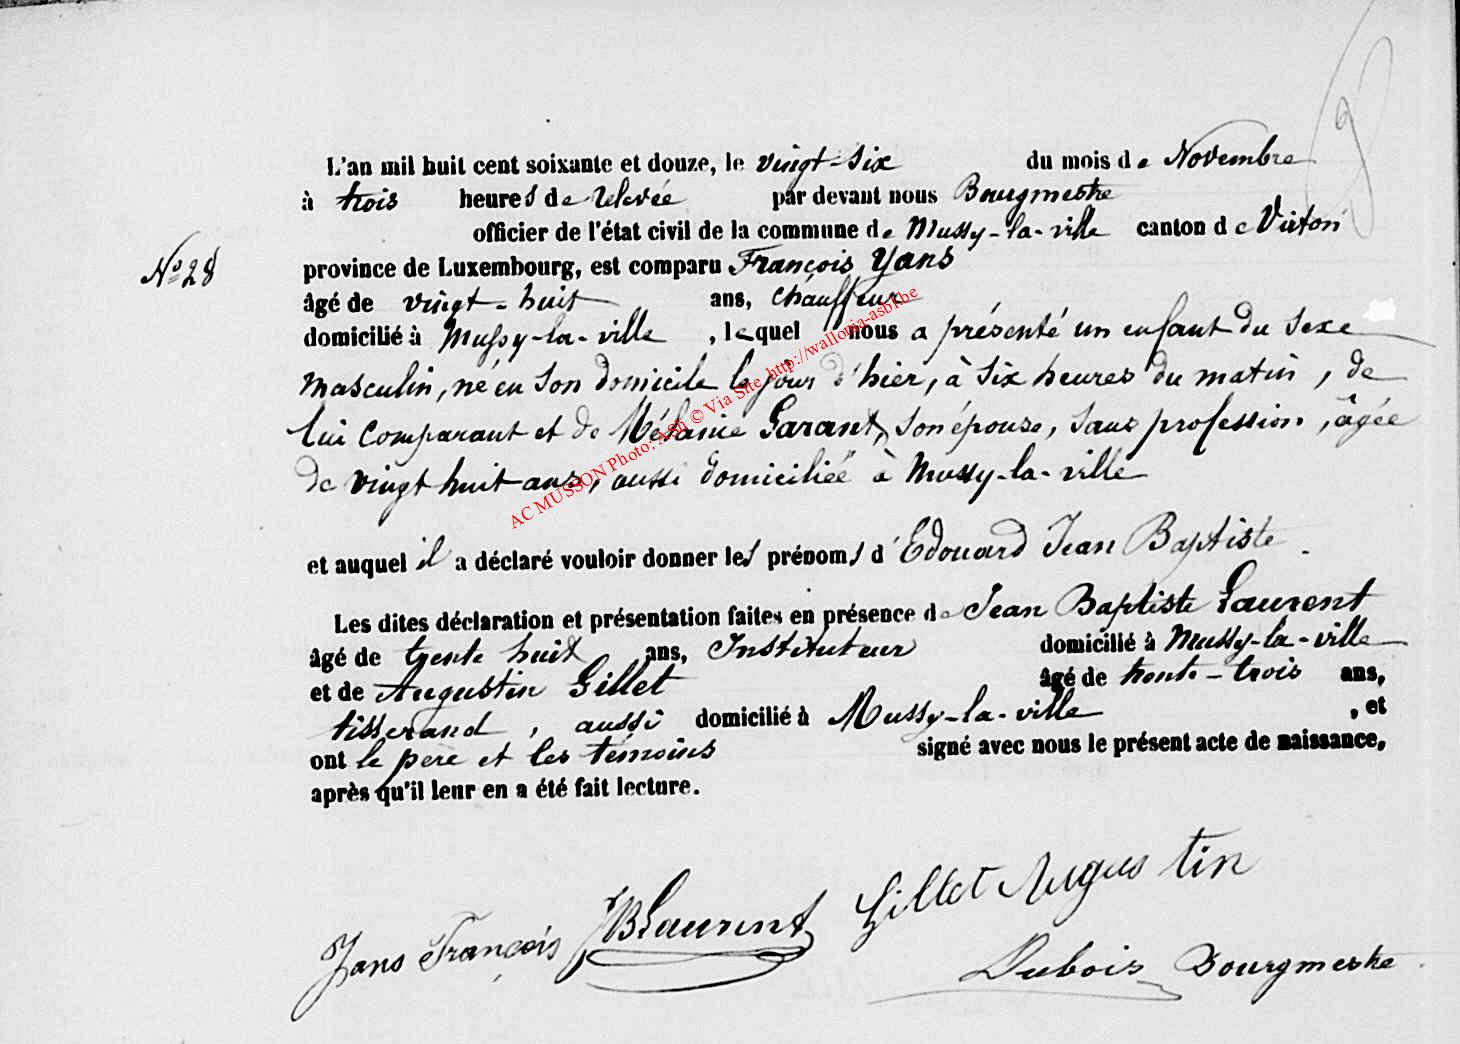 L'an mil huit cent soixante et douze, le vingt-six du mois de Novembre
à trois heures de relevée par devant nous Bourgmestre
officier de l'état civil de la commune de Mussy-la-ville canton de Virton
N° 28
province de Luxembourg, est comparu François Yans
âgé de vingt-huit ans, chauffeur
domicilié à Mussy-la-ville, lequel nous a présenté un enfant du sexe
masculin, né en son domicile le jour d'hier, à six heures du matin, de
lui comparant et de Mélanie Garant, son épouse, sans profession, âgée
de vingt huit ans, aussi domiciliée à Mussy-la-ville
AC MUSSON Photo: ASh © Via Site http://wallonia-asbl.be
et auquel il a déclaré vouloir donner les prénoms d'Edouard Jean Baptiste.
Les dites déclaration et présentation faites en présence de Jean Baptiste Laurent
âgé de trente huit ans, Instituteur domicilié à Mussy-la-ville
et de Augustin Gillet âgé de trente-trois ans,
tisserand, aussi domicilié à Mussy-la-ville, et
ont le père et les témoins signé avec nous le présent acte de naissance,
après qu'il leur en a été fait lecture.
Gillet Augustin
Yans François JBLaurent
Dubois Bourgmestre